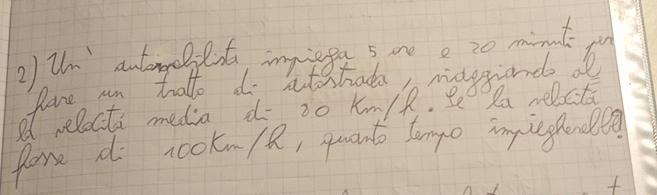 2) Un' automobilista impiega 5 ore e 20 minuti per
fare un tratto di autostrada, viaggiando al
la velocità media di 80 Km/h. Se la velocità
fosse di 100Km/h, quanto tempo impiegherebbe?